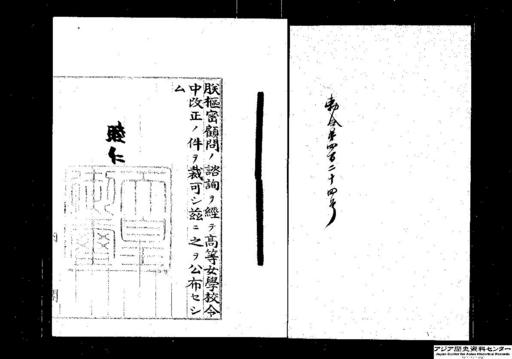 勅令第四百二十四号
朕樞密顧問ノ諮詢ヲ經テ高等女學校令
中改正ノ件ヲ裁可シ茲ニ之ヲ公布セシ
ム
睦仁
天皇
御璽
アジア歴史資料センター